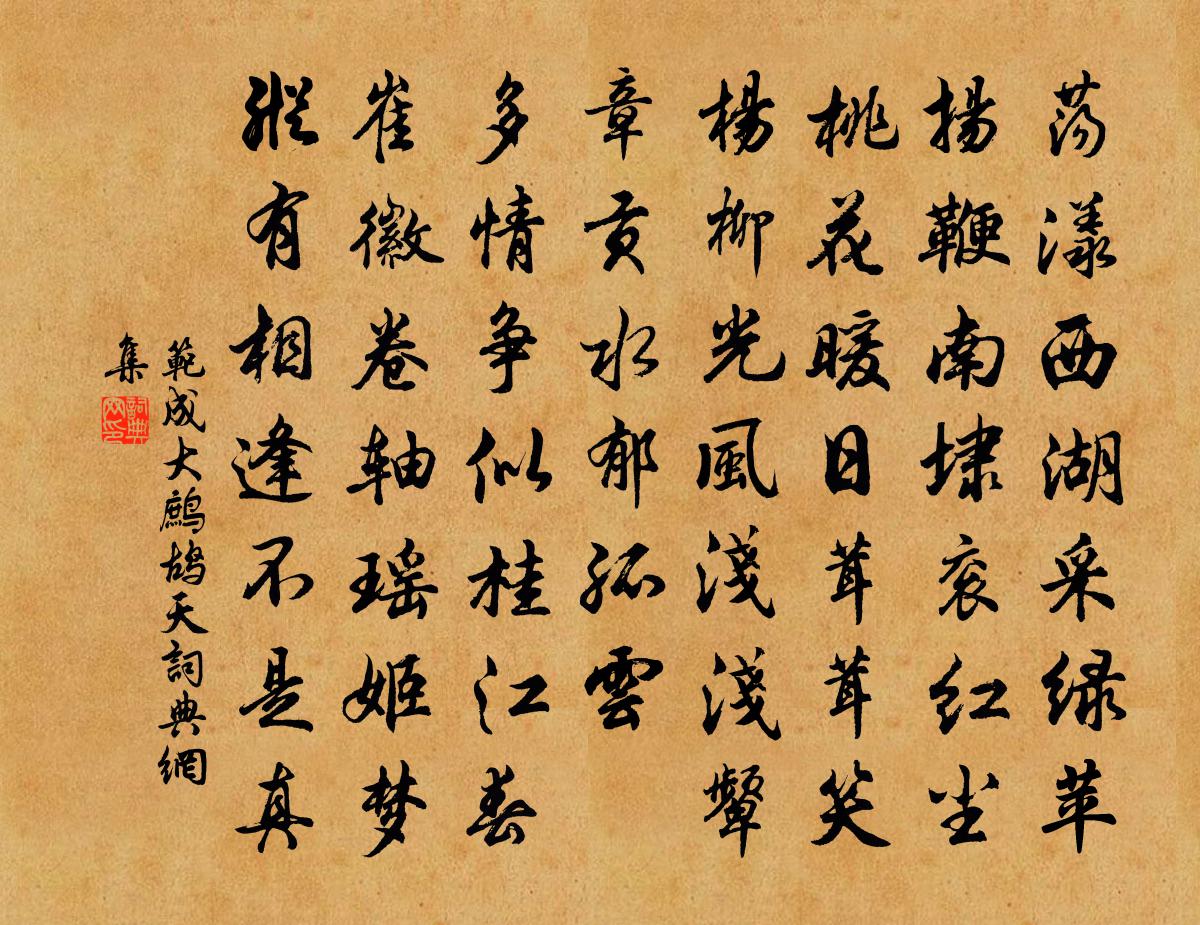 荡漾西湖采绿苹
揚鞭南埭衮红尘
桃花暖日茸茸笑
楊柳光風淺淺顰
章贡水郁孤雲
多情争似桂江春
崔徽卷轴瑶姬梦
縱有相逢不是真
範成大鷓鸪天詞典網
集
詞典網印